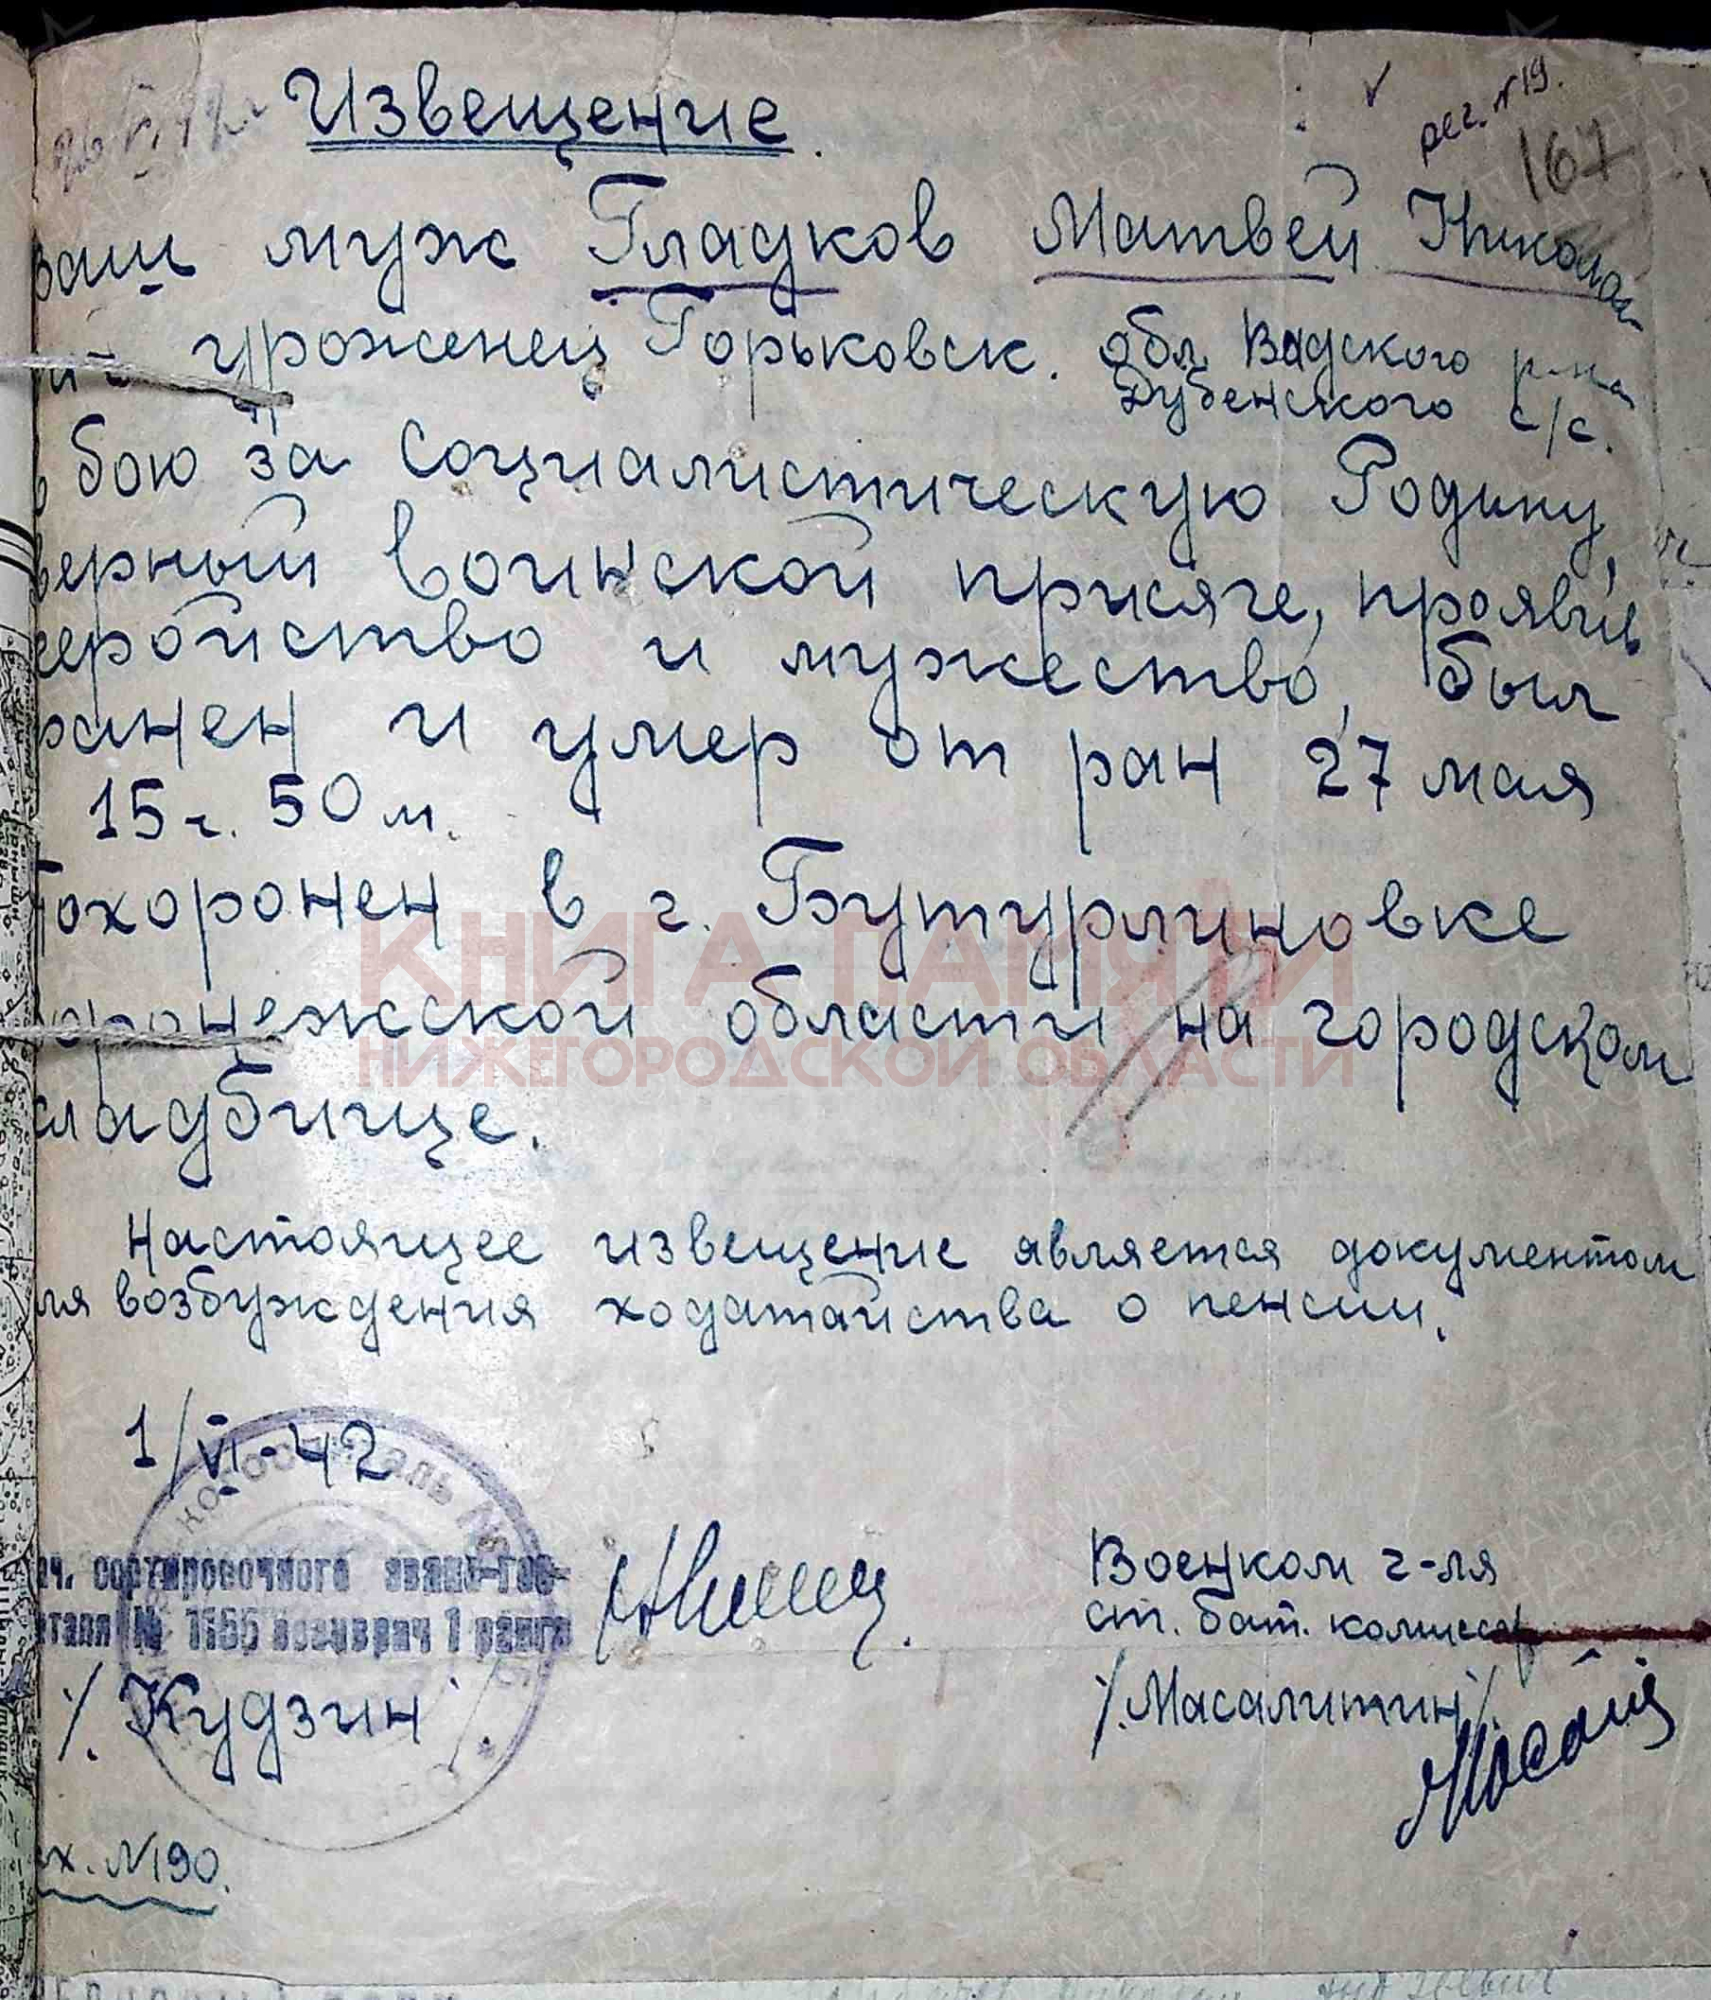 Извещение.
рег. №19.
167
ваш муж Гладков Матвей Никола
уроженец Горьковск. обл Вадского р-на
Дубенского с/с.
бою за социалистическую Родину,
верный воинской присяге, проявив
геройство и мужество, был
ранен и умер от ран 27 мая
15 г. 50 м.
похоронен в г. Бутурлиновке
оронежской области на городском
кладбище.
КНИГА ПАМЯТИ
НИЖЕГОРОДСКОЙ ОБЛАСТИ
Настоящее извещение является документом
ля возбуждения ходатайства о пенсии.
1/VI-42
ач. сортировочного эвако-гос-
италя № 1166 военврач 1 ранга
/. Кудзин
Военком г-ля
ст. бат. комиссар
/. Масалитин /.
сх. №190.